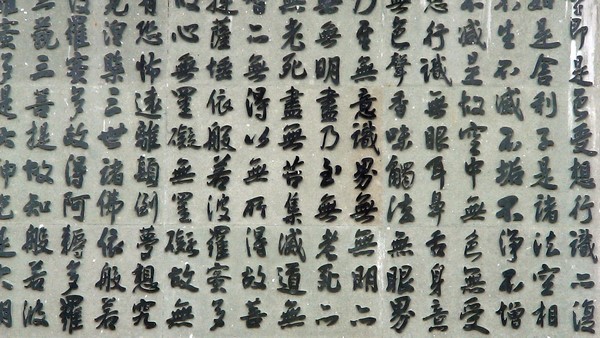 即是色受想行識亦復
如是舍利子是諸法空相
不生不滅不垢不淨不增
不減是故空中無色無受
想行識無眼耳鼻舌身意
無色聲香味觸法無眼界
乃至無意識界無無明亦
無無明盡乃至無老死亦
無老死盡無苦集滅道無
智亦無得以無所得故菩
提薩埵依般若波羅蜜多
心無罣礙無罣礙故無
有恐怖遠離顛倒夢想究
涅槃三世諸佛依般若
波羅蜜多故得阿耨多羅
三藐三菩提故知般若波
蜜多是大神咒是大明